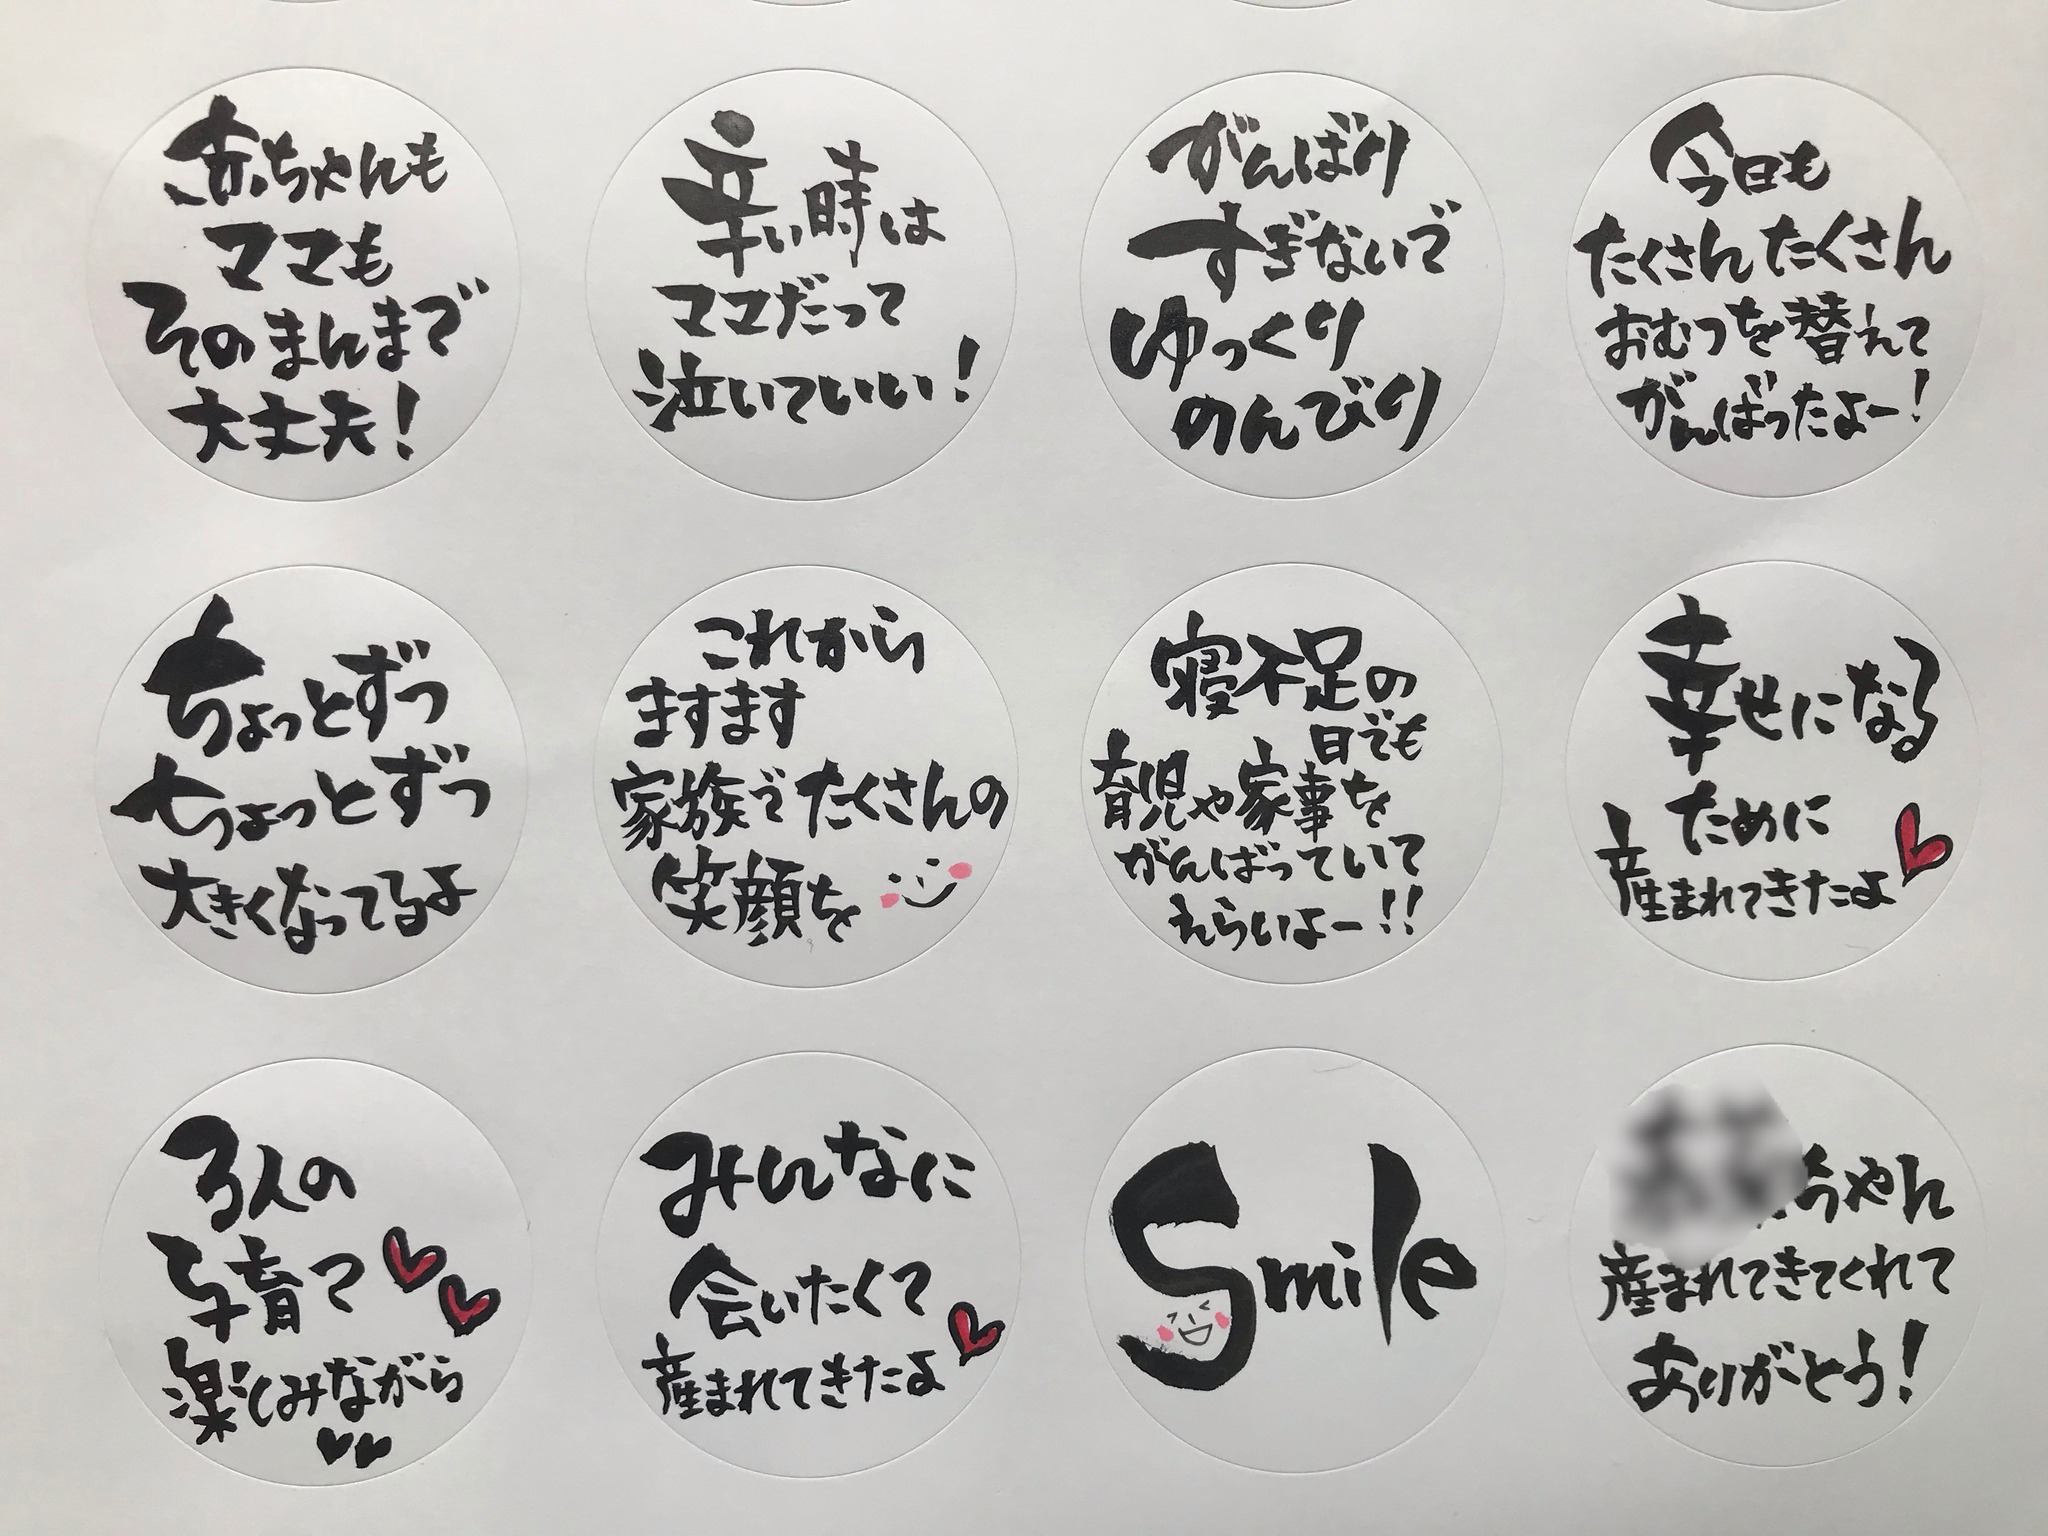 赤ちゃんも
ママも
そのまんまで
大丈夫!
辛い時は
ママだって
泣いていい!
がんばり
すぎないで
ゆっくり
のんびり
今日も
たくさんたくさん
おむつを替えて
がんばったよー!
ちょっとずつ
ちょっとずつ
大きくなってるよ
これから
ますます
家族でたくさんの
笑顔を
寝不足の
日でも
育児や家事を
がんばっていて
えらいよー!!
幸せになる
ために
産まれてきたよ
3人の
子育て
楽しみながら
みんなに
会いたくて
産まれてきたよ
Smile
ちゃん
産まれてきてくれて
ありがとう!